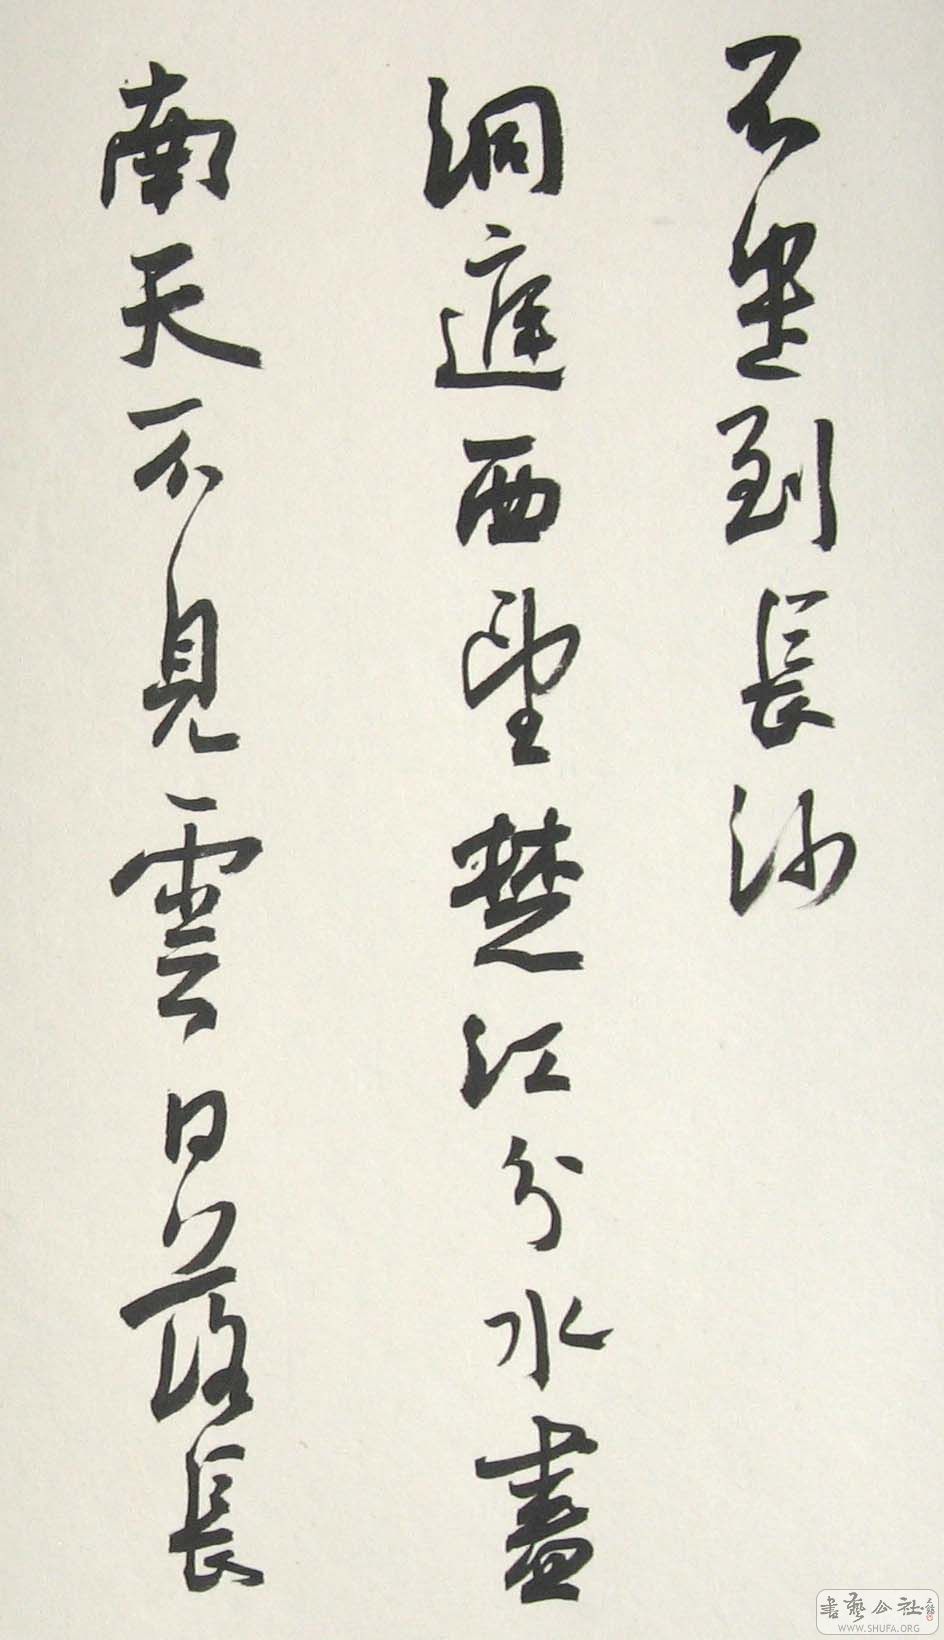 不是到長沙
洞庭西望楚江分水盡
南天不見雲日落長
書藝公社
WWW.SHUFA.ORG